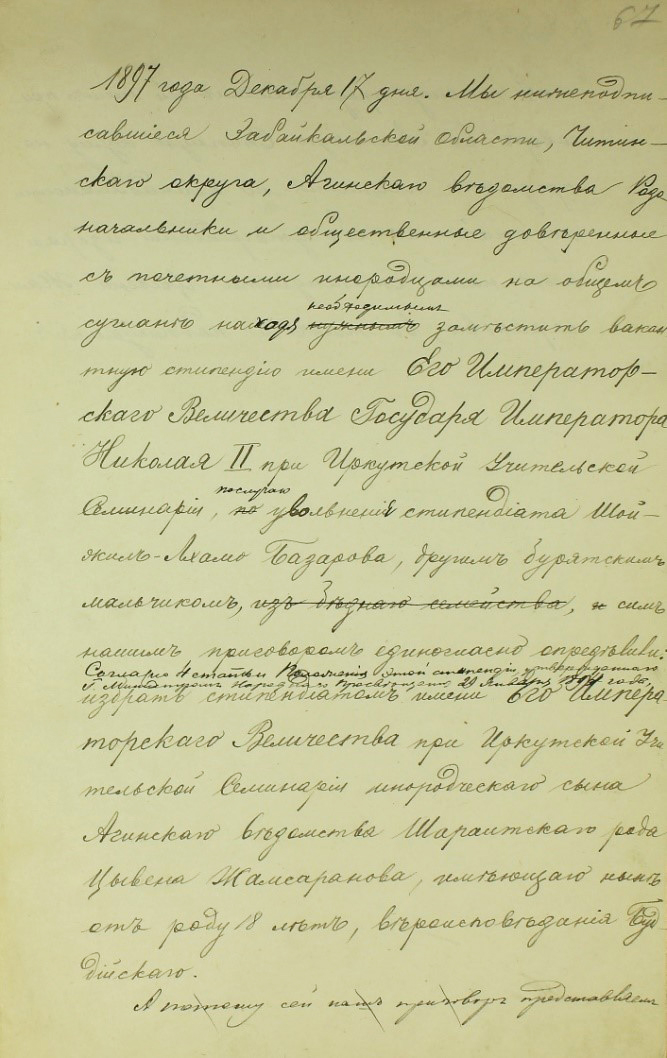 67
1897 года Декабря 17 дня. Мы нижеподпи-
савшіеся Забайкальской области, Читин-
скаго округа, Агинскаго вѣдомства Родо
начальники и общественные довѣренные
съ почетными инородцами на общемъ
необходимымъ
сугланѣ находя нужнымъ замѣстить вакан
тную стипендію имени Его Император-
скаго Величества Государя Императора
Николая II при Иркутской Учительской
послучаю
Семинаріи, по увольненія стипендіата Шой-
жимъ-Лхамо Базарова, другимъ бурятскимъ
мальчикомъ, изъ бѣднаго семейства, и симъ
нашимъ приговоромъ единогласно опредѣлили:
Согласно 4 статьи Положенія этой стипендіи утвержденнаго
Г. Министромъ Народнаго Просвѣщенія 29 Января года,
избрать стипендіатомъ имени Его Импера-
торскаго Величества при Иркутской Учи
тельской Семинаріи инородческаго сына
Агинскаго вѣдомства Шараитскаго рода
Цывена Жамсаранова, имѣющаго нынѣ
отъ роду 18 лѣтъ, вѣроисповѣданія Буд
дійскаго.
А потому сей нашъ приговоръ представляемъ